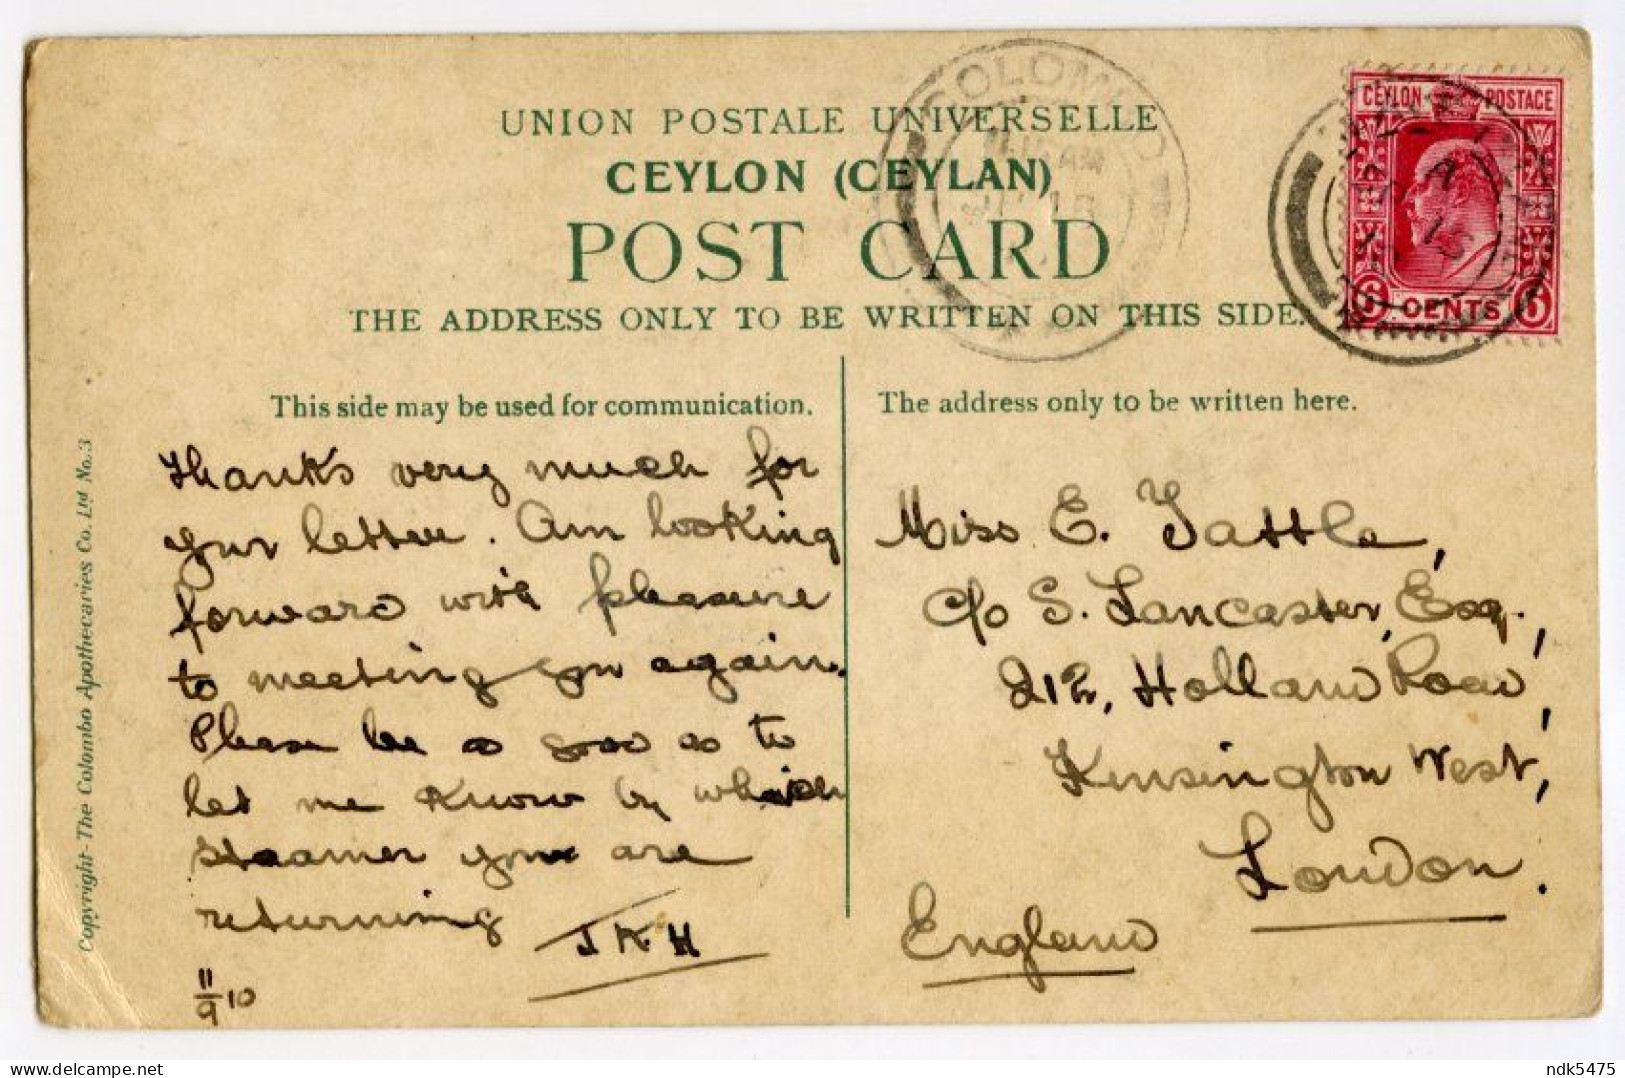 UNION POSTALE UNIVERSELLE
CEYLON (CEYLAN)
POST CARD
THE ADDRESS ONLY TO BE WRITTEN ON THIS SIDE.
COLOMBO
CEYLON POSTAGE
6 CENTS 6
This side may be used for communication.
Thanks very much for
your letter. Am looking
forward with pleasure
to meeting you again.
Please be so good as to
let me know by which
steamer you are
returning
JKH
11/9 10
The address only to be written here.
Miss E. Tattle,
c/o S. Lancaster, Esq.,
212, Holland Road,
Kensington West,
London.
England
Copyright-The Colombo Apothecaries Co. Ltd No.3
ndk5475